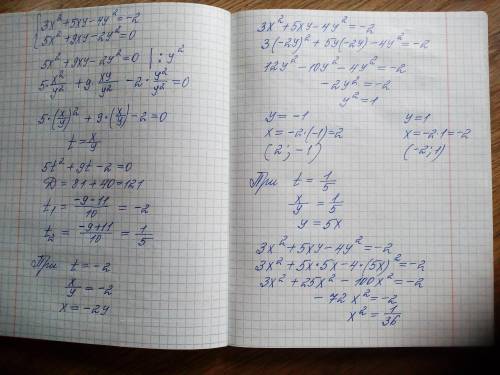 { 3x² + 5xy - 4y² = -2
5x² + 9xy - 2y² = 0
5x² + 9xy - 2y² = 0 | : y²
5·x²/y² + 9·xy/y² - 2·y²/y² = 0
5·(x/y)² + 9·(x/y) - 2 = 0
t = x/y
5t² + 9t - 2 = 0
D = 81 + 40 = 121
t₁ = (-9-11)/10 = -2
t₂ = (-9+11)/10 = 1/5
При t = -2
x/y = -2
x = -2y
3x² + 5xy - 4y² = -2
3·(-2y)² + 5y(-2y) - 4y² = -2
12y² - 10y² - 4y² = -2
-2y² = -2
y² = 1
y = -1 y = 1
x = -2·(-1) = 2 x = -2·1 = -2
(2; -1) (-2; 1)
При t = 1/5
x/y = 1/5
y = 5x
3x² + 5xy - 4y² = -2
3x² + 5x·5x - 4·(5x)² = -2
3x² + 25x² - 100x² = -2
-72x² = -2
x² = 1/36